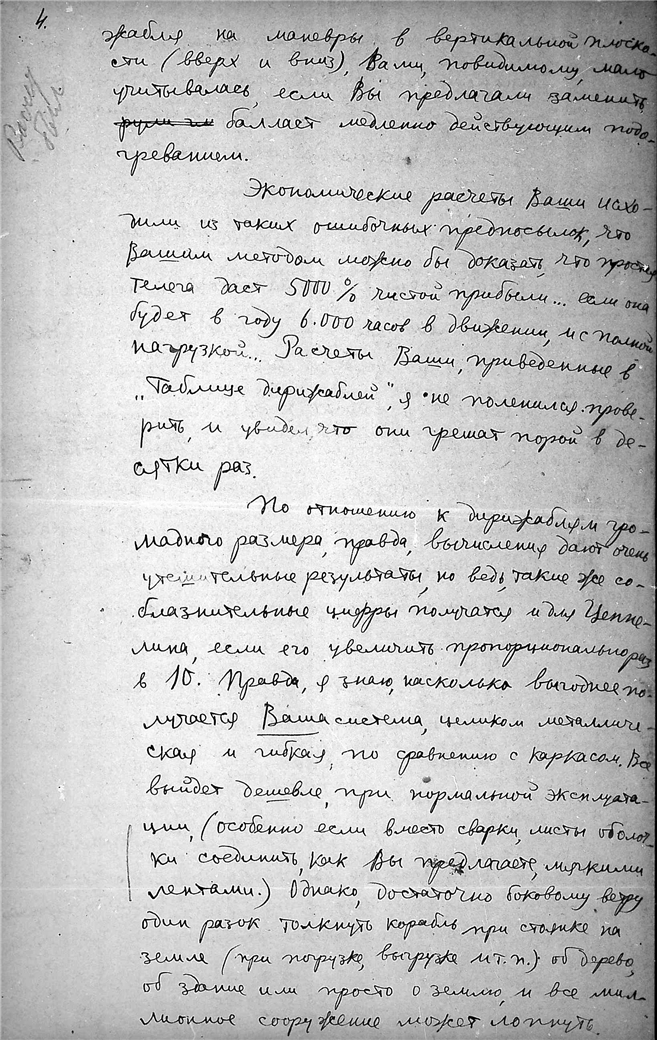 4.
жабля на маневры в вертикальной плоско-
сти (вверх и вниз), Вами, повидимому, мало
учитывалась, если Вы предлагали заменить
рули и баллает медленно действующим подо-
греванием.
Экономические расчеты Ваши исхо-
дили из таких ошибочных предпосылок, что
Вашим методом можно бы доказать, что простая
телега даст 5000 % чистой прибыли... если она
будет в году 6.000 часов в движении, и с полной
нагрузкой... Расчеты Ваши, приведенные в
„Таблице дирижаблей", я не поленился прове-
рить, и увидел, что они грешат порой в де-
сятки раз.
По отношению к дирижаблям гро-
мадного размера, правда, вычисления дают очень
утешительные результаты, но ведь, такие же со-
блазнительные цифры получатся и для Цеппе-
лина, если его увеличить пропорционально раз
в 10. Правда, я знаю, насколько выгоднее по-
лучается Ваша система, целиком металличе-
ская и гибкая, по сравнению с каркасом. Все
выйдет дешевле, при нормальной эксплуата-
ции, (особенно если вместо сварки, листы оболоч-
ки соединить, как Вы предлагаете, мягкими
лентами.) Однако, достаточно боковому ветру
один разок толкнуть корабль при стоянке на
земле (при погрузке, выгрузке и т.п.) об дерево,
об здание или просто о землю, и все мил-
лионное сооружение может лопнуть.